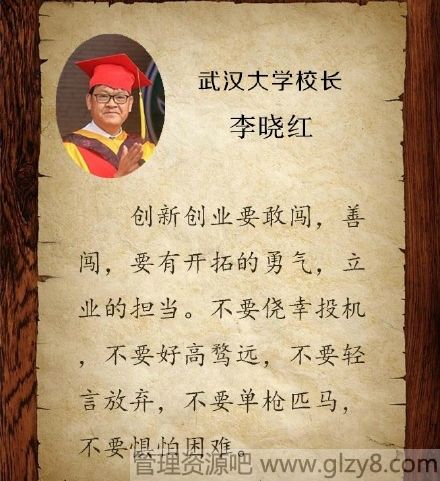 武汉大学校长
李晓红
创新创业要敢闯，善
闯，要有开拓的勇气，立
业的担当。不要侥幸投机
，不要好高骛远，不要轻
言放弃，不要单枪匹马，
不要惧怕困难。
管理资源吧 www.glzy8.com